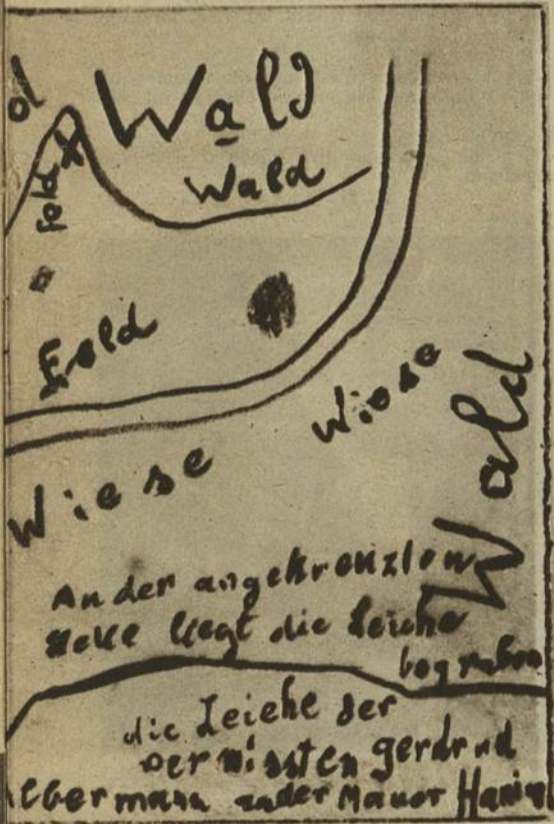 ol
Wald
Wald
Feld
Feld
Wiese
Wiese
Wald
An der angekreuzten
Stelle liegt die Leiche
begraben
die Leiche der
vermissten gerdrud
ebermann ander Mauer Haniel